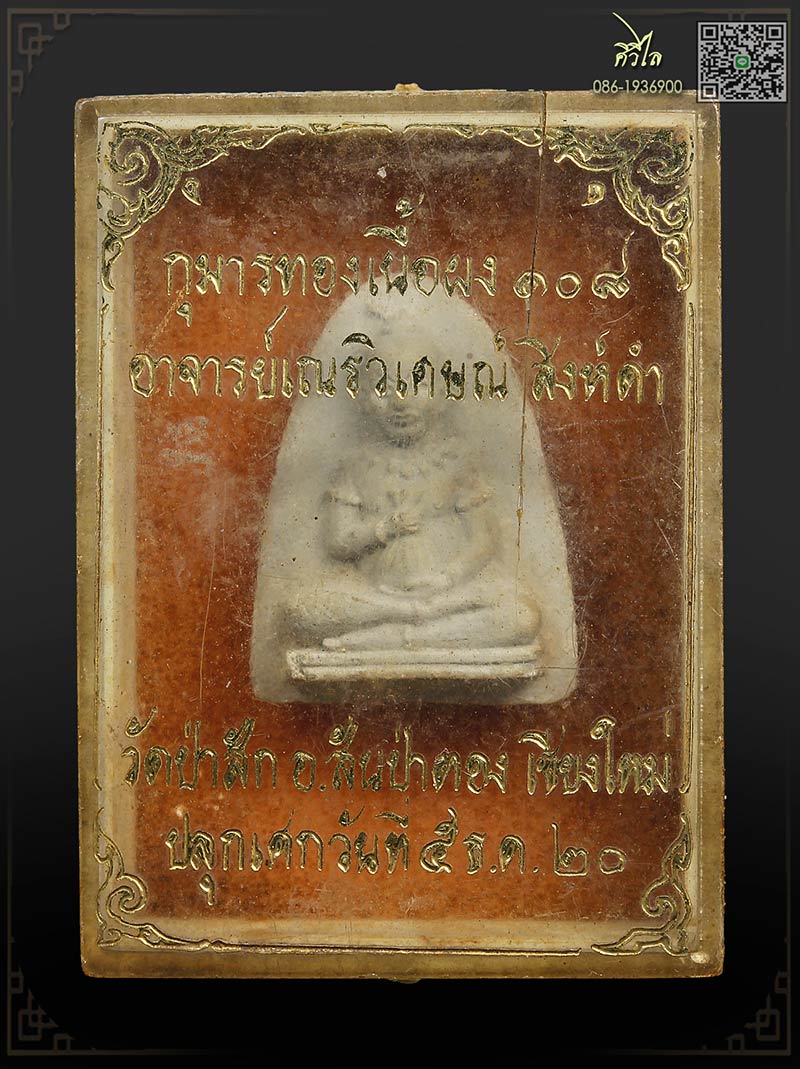 ศิวิไล
086-1936900
กุมารทองเนื้อผง ๑๐๘
อาจารย์เณรวิเศษณ์ สิงห์คำ
วัดป่าสัก อ.สันป่าตอง เชียงใหม่
ปลุกเศกวันที่ ๕ ธ.ค.๒๐